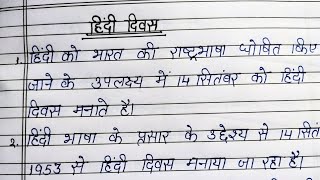 हिंदी दिवस
1. हिंदी को भारत की राष्ट्रभाषा घोषित किए
जाने के उपलक्ष्य में 14 सितंबर को हिंदी
दिवस मनाते है।
2. हिंदी भाषा के प्रसार के उद्देश्य से 14 सितं
1953 से हिंदी दिवस मनाया जा रहा है।